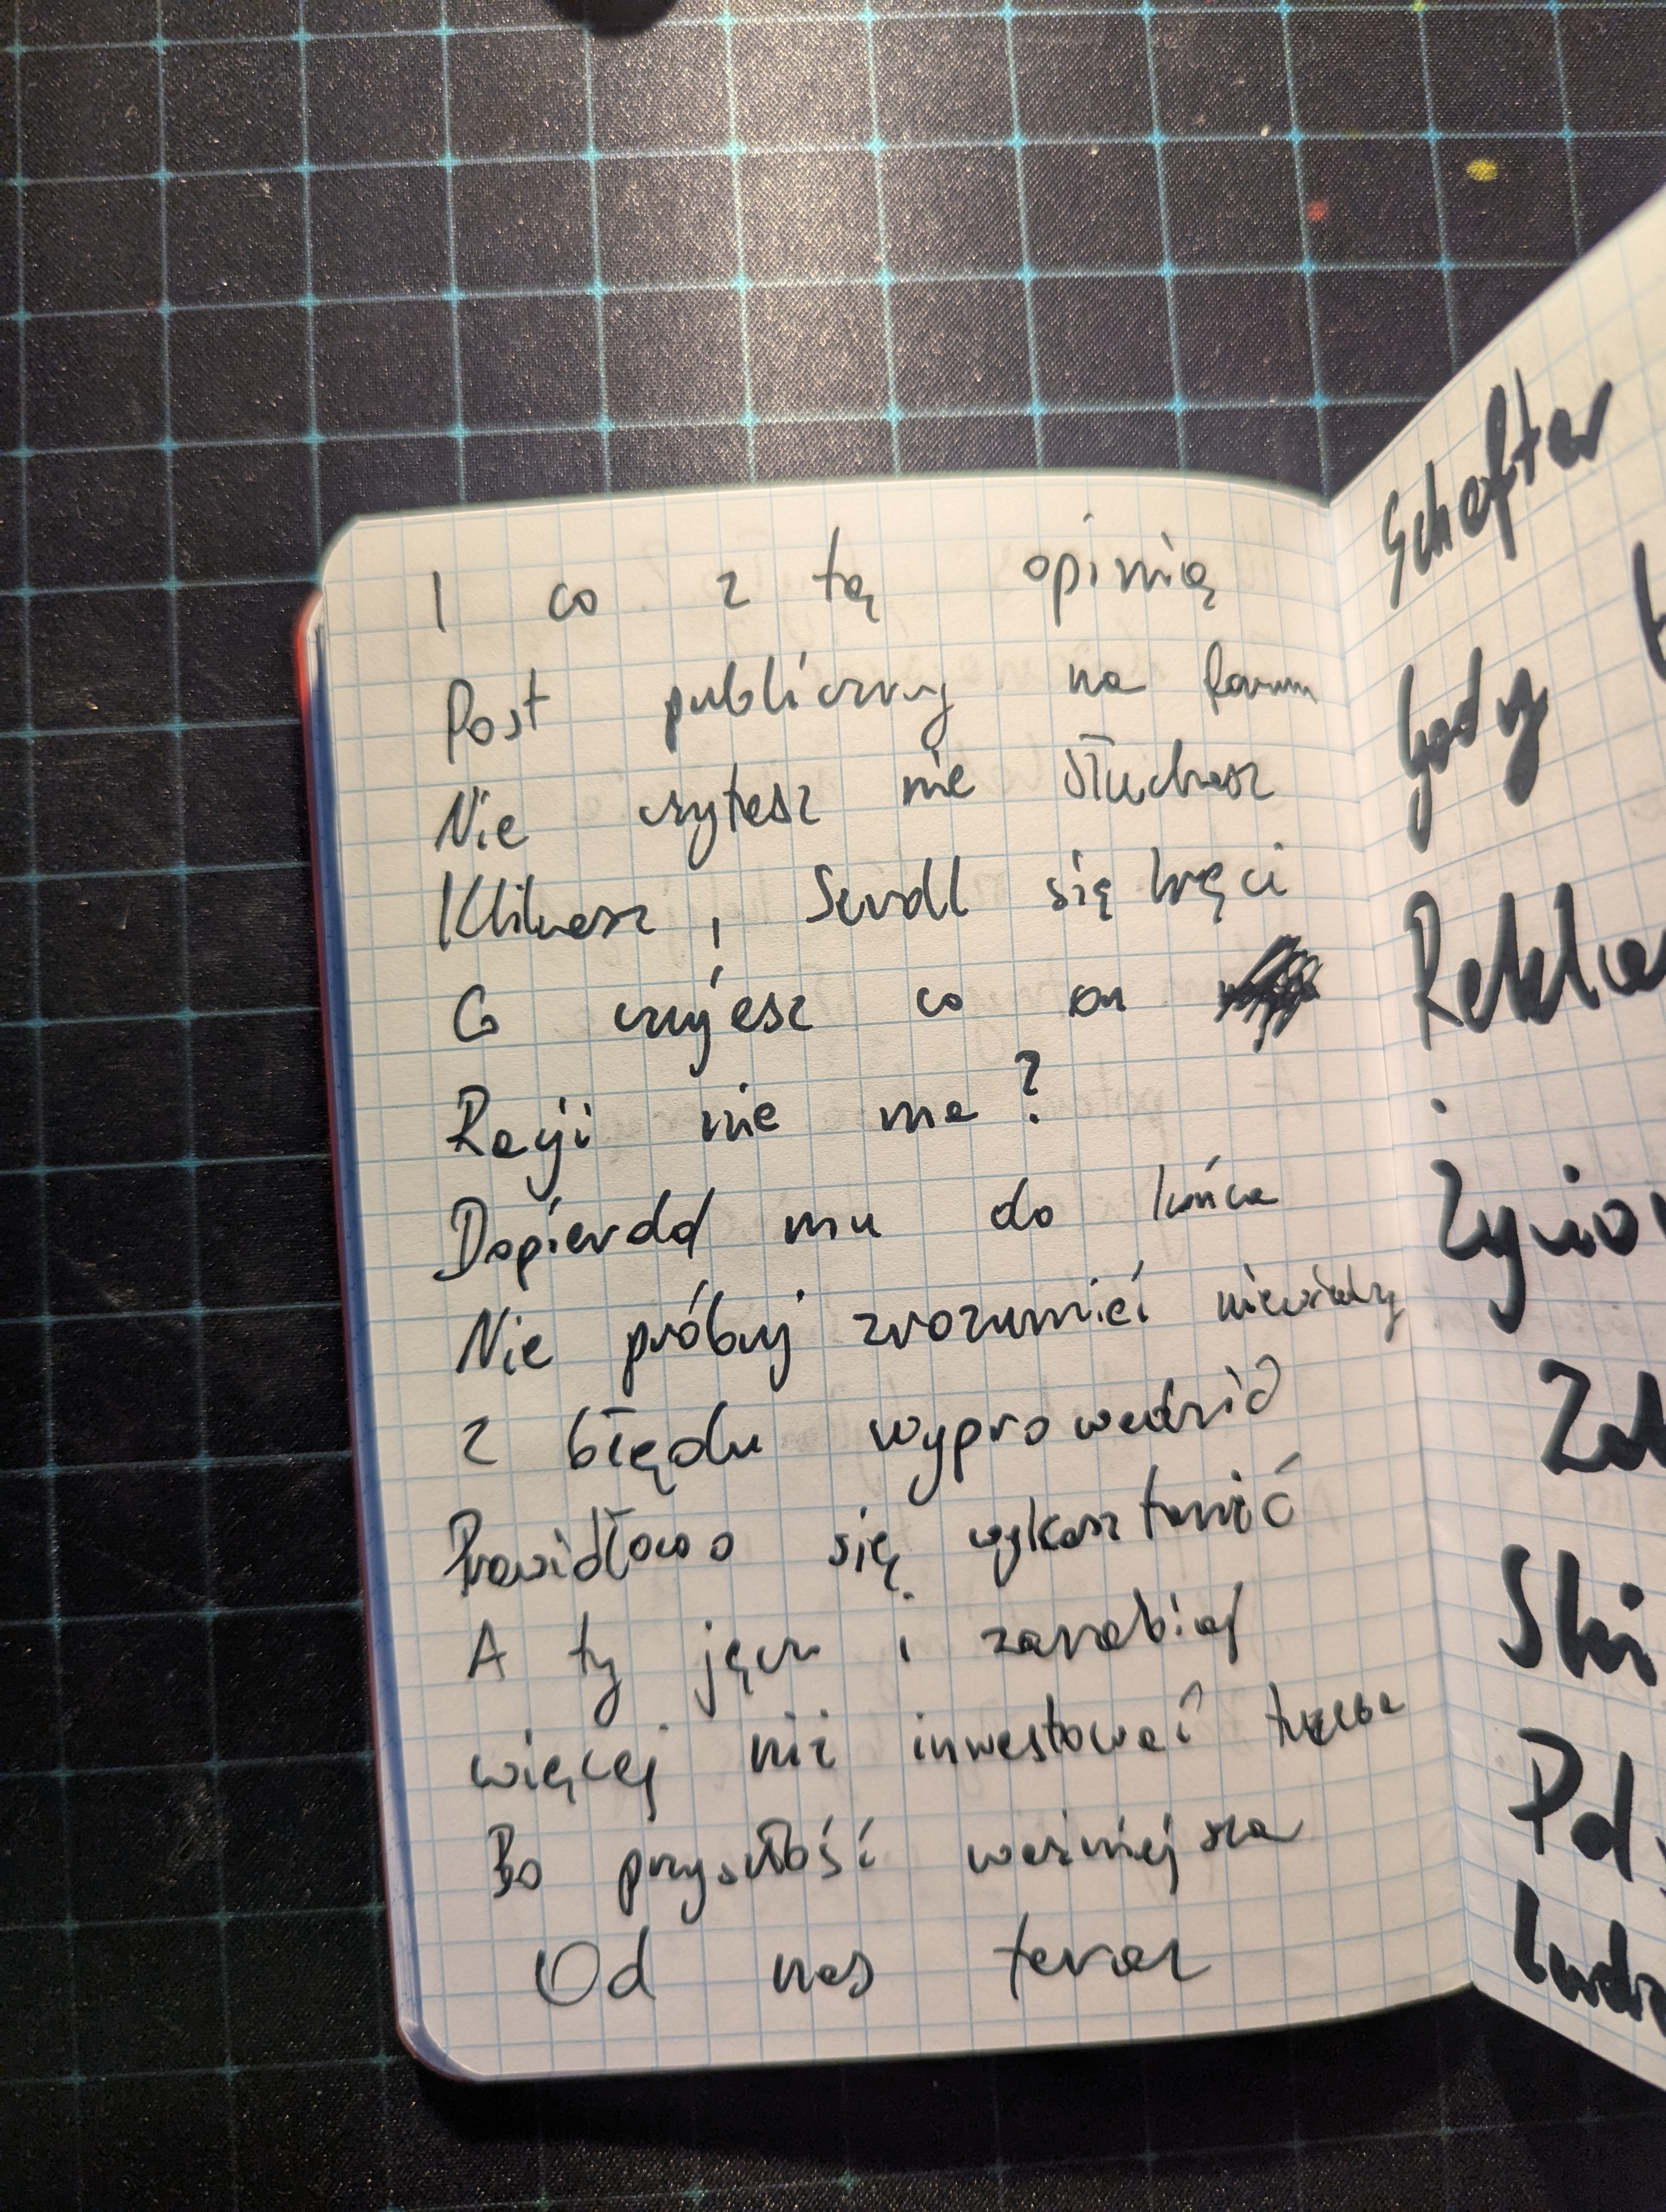 I co z tą opinią
Post publiczny na forum
Nie czytasz nie słuchasz
Klikasz, Scroll się kręci
Co czujesz co on
Racji nie ma?
Dopierdol mu do końca
Nie próbuj zrozumieć niewiedzy
z błędu wyprowadzić
Prawidłowo się wykształcić
A ty jęcz i zarabiaj
więcej niż inwestować trzeba
Bo przyszłość ważniejsza
Od nas teraz
Schafter
Gody
Skó